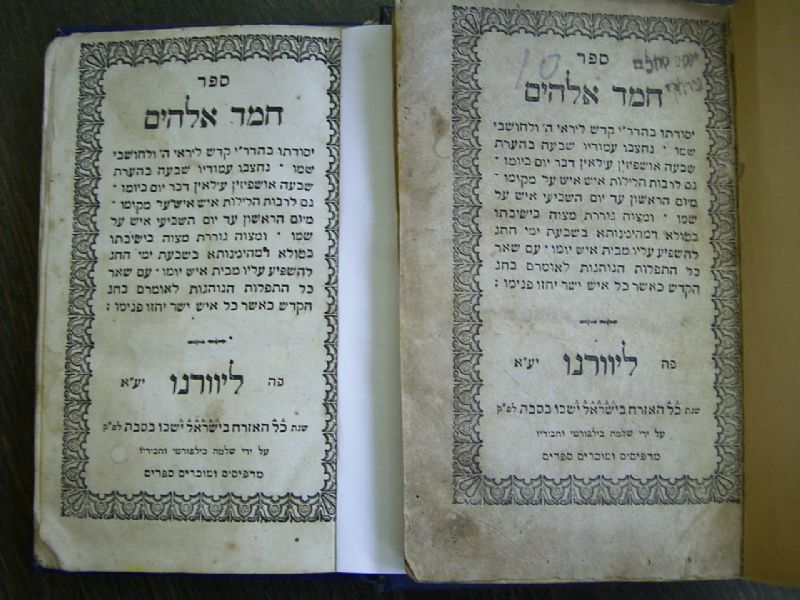 ספר
חמד אלהים
יסודתו בהדר״י קדש ליראי ה׳ ולחושבי
שמו ׳ נחצבו עמודיו שבעה בהערת
שבעה אושפיזין עילאין דבר יום ביומו ׳
גם לרבות הלילות איש איש על מקומו ׳
מיום הראשון עד יום השביעי איש על
שמו ׳ ומצוה גוררת מצוה בישיבתו
בטולא דמהימנותא בשבעת ימי החג
להשפיע עליו מבית איש יומו ׳ עם שאר
כל התפלות הנוהגות לאומרם בחג
הקדש כאשר כל איש ישר יחזו פנימו :
פה ליוורנו יע״א
שנת כל האזרח בישראל ישבו בסכת לפ״ק
על ידי שלמה בילפורטי וחביריו
מדפיסים ומוכרים ספרים
10
ספר
חמד אלהים
יסודתו בהדר״י קדש ליראי ה׳ ולחושבי
שמו ׳ נחצבו עמודיו שבעה בהערת
שבעה אושפיזין עילאין דבר יום ביומו ׳
גם לרבות הלילות איש איש על מקומו ׳
מיום הראשון עד יום השביעי איש על
שמו ׳ ומצוה גוררת מצוה בישיבתו
בטולא דמהימנותא בשבעת ימי החג
להשפיע עליו מבית איש יומו ׳ עם שאר
כל התפלות הנוהגות לאומרם בחג
הקדש כאשר כל איש ישר יחזו פנימו :
פה ליוורנו יע״א
שנת כל האזרח בישראל ישבו בסכת לפ״ק
על ידי שלמה בילפורטי וחביריו
מדפיסים ומוכרים ספרים